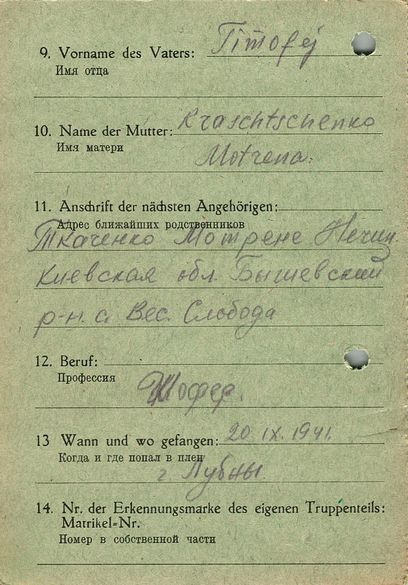 9. Vorname des Vaters: Timofej
Имя отца
10. Name der Mutter: Kraschtschenko
Имя матери
Motrena.
11. Anschrift der nächsten Angehörigen:
Адрес ближайших родственников
Ткаченко Мотрене Нечип.
Киевская обл. Бышевский
р-н. с. Вес. Слобода
12. Beruf:
Профессия
Шофер.
13 Wann und wo gefangen: 20.IX.1941.
Когда и где попал в плен
г. Лубны
14. Nr. der Erkennungsmarke des eigenen Truppenteils:
Matrikel-Nr.
Номер в собственной части